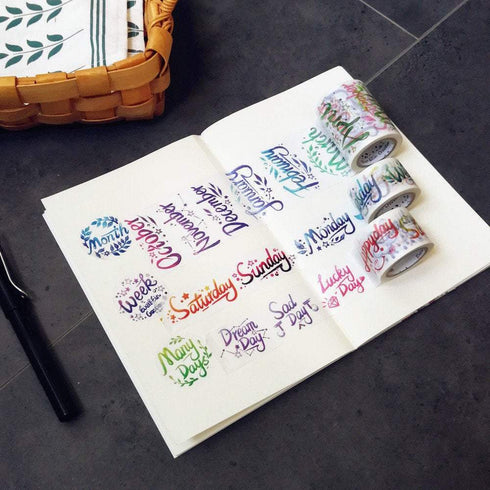 Month
October
November
December
January
February
March
April
Week
Saturday
Sunday
Monday
Many
Days
Dream
Day
Sad
Day
Lucky
Day